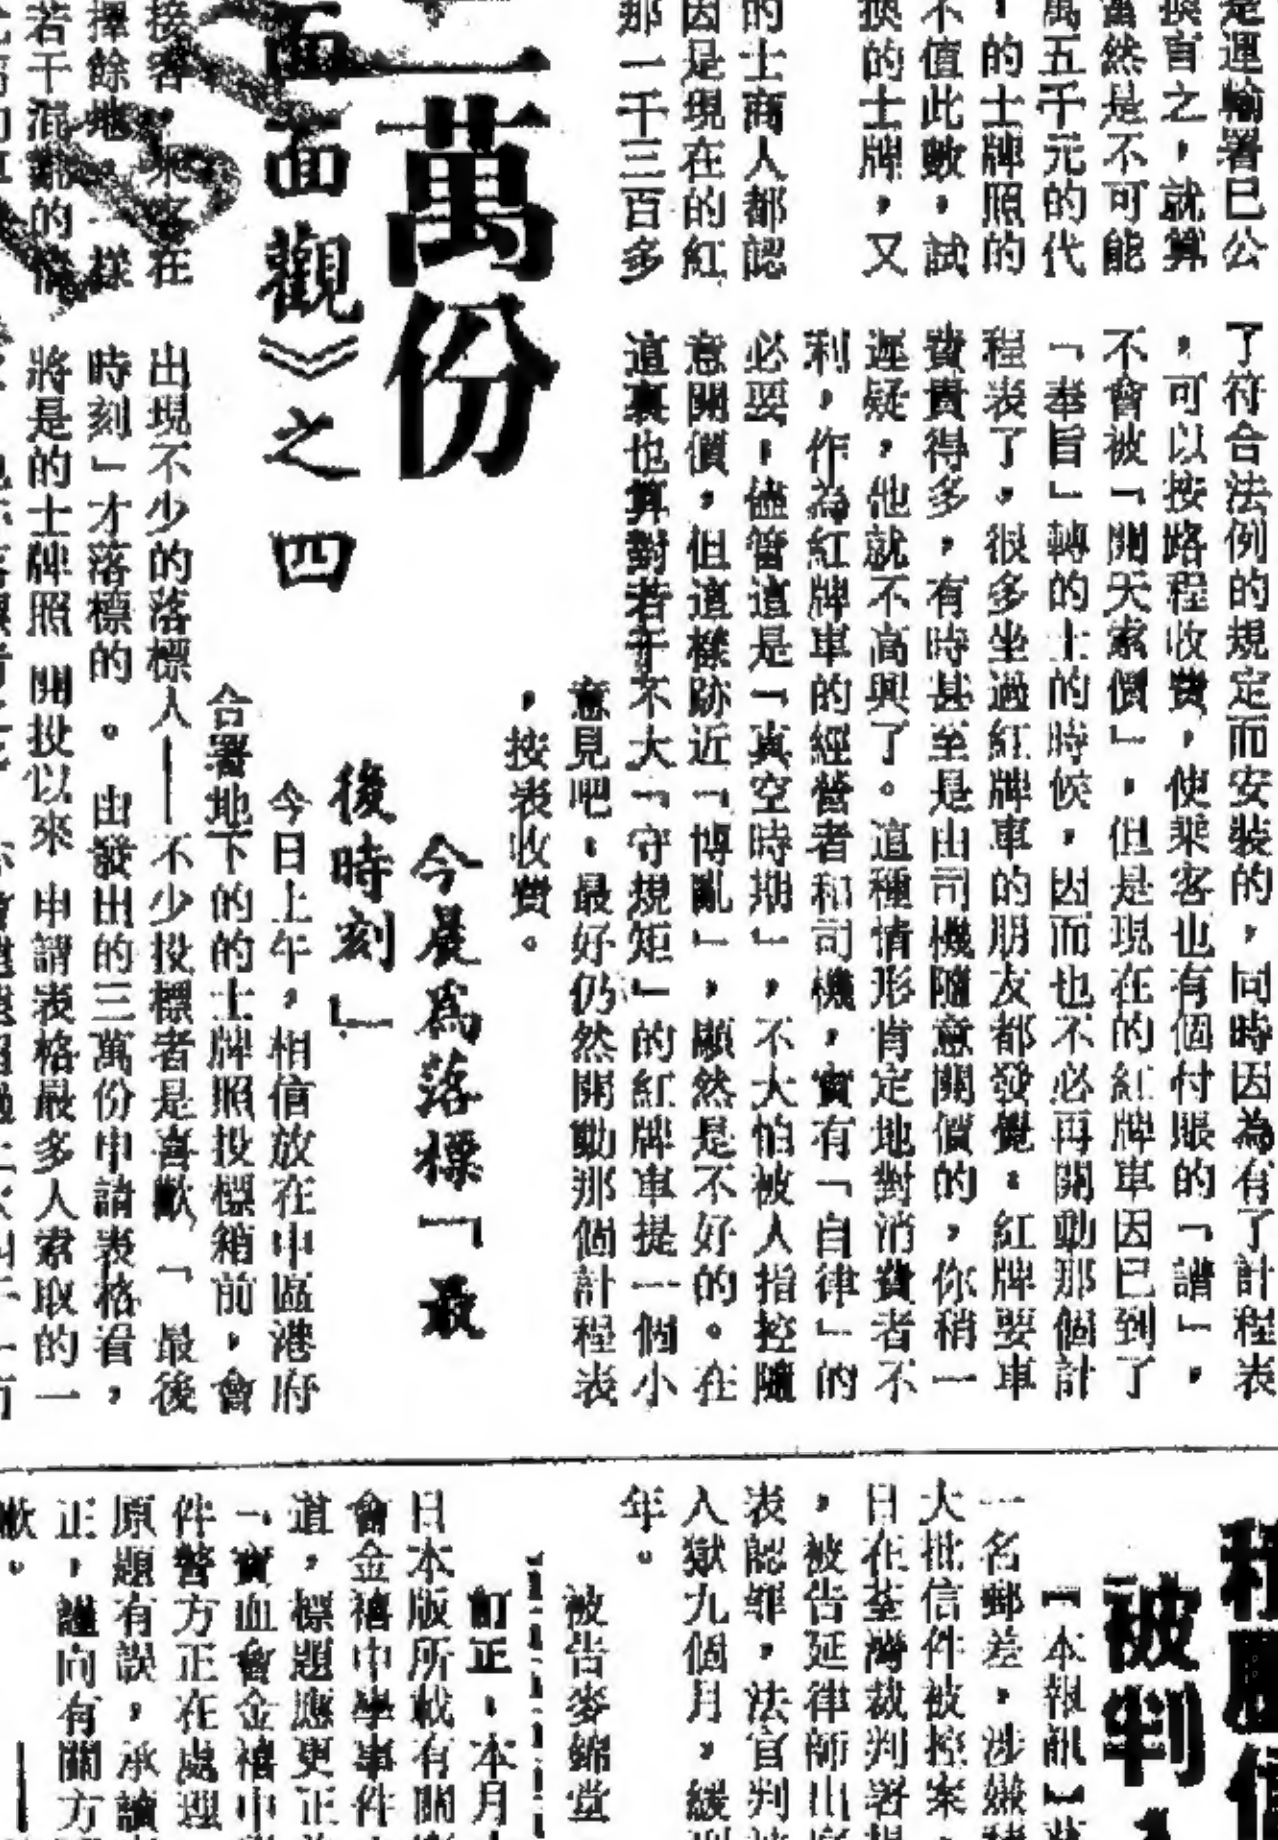 是運輸署已公
換言之，就算
當然是不可能
萬五千元的代
，的士牌照的
不值此數，試
換的士牌，又
的士商人都認
因是現在的紅
那一千三百多
了符合法例的規定而安裝的，同時因為有了計程表
，可以按路程收費，使乘客也有個付賬的「譜」，
不會被「開天索價」，但是現在的紅牌車因已到了
「奉旨」轉的士的時候，因而也不必再開動那個計
程表了。很多坐過紅牌車的朋友都發覺：紅牌要車
費貴得多，有時甚至是由司機隨意開價的，你稍一
遲疑，他就不高興了。這種情形肯定地對消費者不
利，作為紅牌車的經營者和司機，實有「自律」的
必要，儘管這是「真空時期」，不大怕被人指控隨
意開價，但這樣跡近「博亂」，顯然是不好的。在
這裏也算對若干不大「守規矩」的紅牌車提一個小
意見吧，最好仍然開動那個計程表
，按表收費。
二萬份
面面觀》之四
今晨為落標「最
後時刻」
今日上午，相信放在中區港府
合署地下的的士牌照投標箱前，會
出現不少的落標人——不少投標者是喜歡「最後
時刻」才落標的。由發出的三萬份申請表格看，
將是的士牌照開投以來申請表格最多人索取的一
接客，乘客在
擇餘地，一樣
若干混亂的情
被判入
【本報訊】
一名郵差，涉嫌
大批信件被控案，
日在荃灣裁判署提
，被告延律師出庭
表認罪，法官判被
入獄九個月，緩刑
年。
被告麥錦堂
訂正：本月
日本版所載有關
會金禧中學事件
道，標題應更正為
「寶血會金禧中
件警方正在處理
原題有誤，承讀
正，謹向有關方
歉。